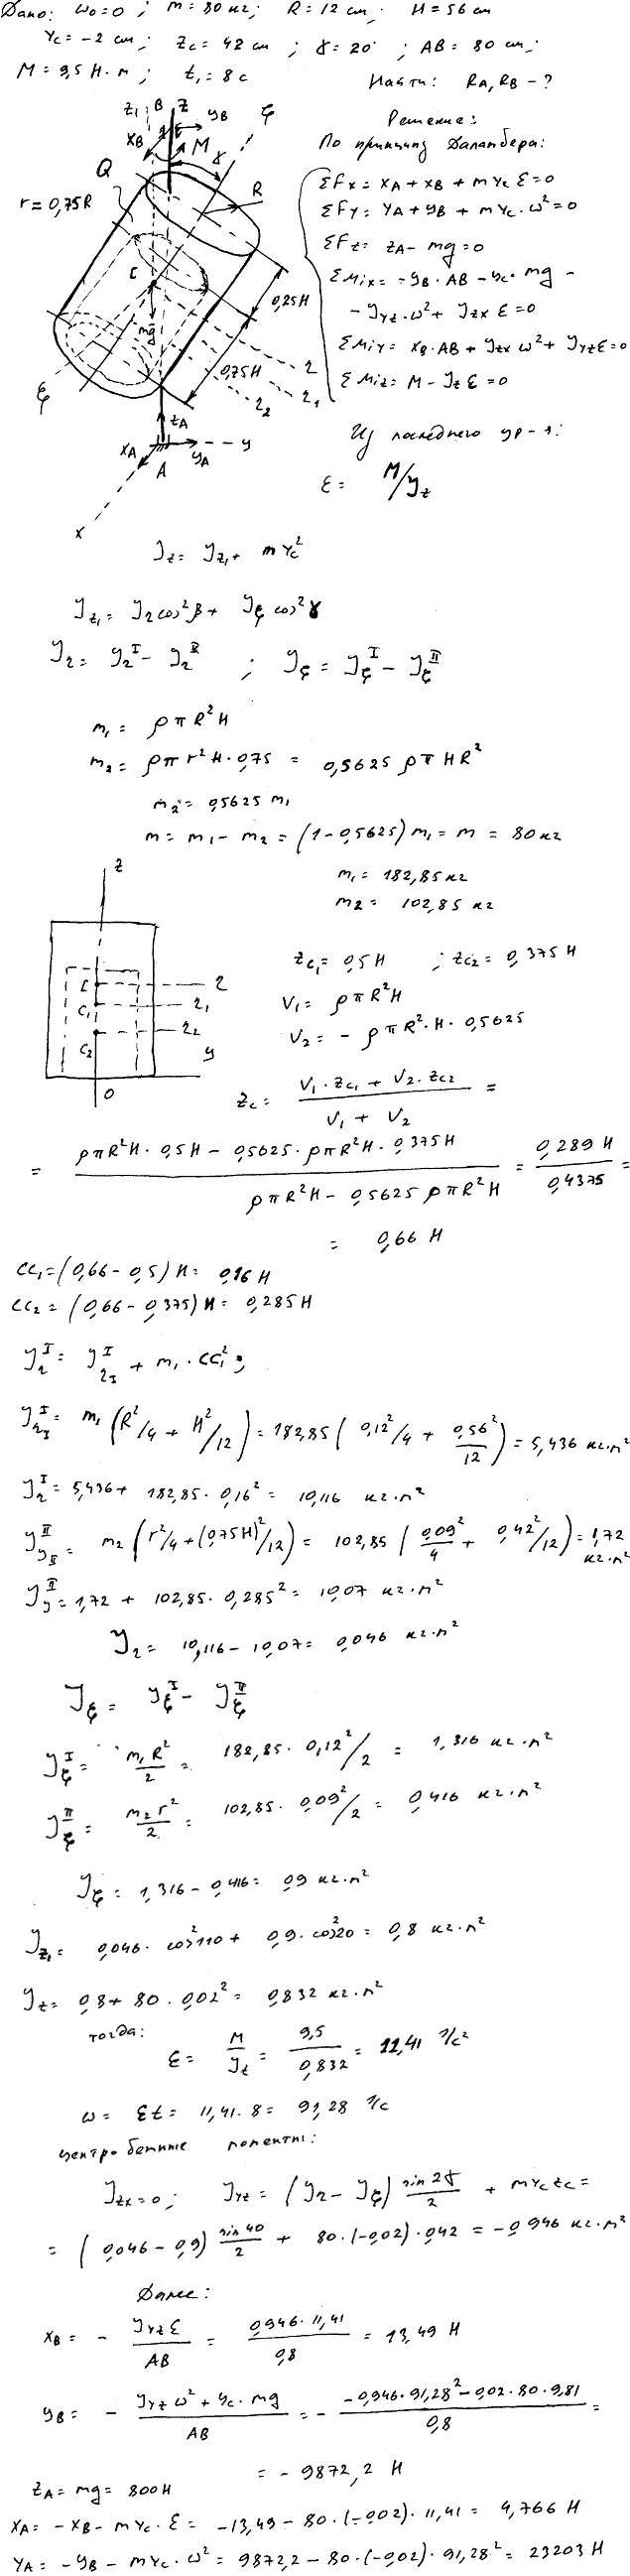 Дано: ω₀=0 ; m = 80 кг; R = 12 см; H = 56 см
Yc = -2 см; Zc = 42 см ; γ = 20° ; AB = 80 см;
M = 9,5 Н·м ; t₁ = 8 с
Найти: RA, RB - ?
Решение:
По принципу Даламбера:
ΣFx = XA + XB + mYc ε = 0
ΣFy = YA + YB + mYc·ω² = 0
ΣFz = ZA - mg = 0
ΣMix = -YB·AB - Yc·mg -
- Jyz·ω² + Jzx ε = 0
ΣMiy = XB·AB + Jzx ω² + Jyz ε = 0
ΣMiz = M - Jz ε = 0
Из последнего ур-я:
ε = M/Jz
z₁ B z yB ζ
xB M γ
Q R
r = 0,75R
C
mg
0,25H
0,75H
2
2₁
2₂
ξ
zA
xA A yA y
x
Jz = Jz₁ + mYc²
Jz₁ = J2 cos²β + Jξ cos²γ
J2 = J2ᴵ - J2ᴵᴵ ; Jξ = Jξᴵ - Jξᴵᴵ
m₁ = ρπR²H
m₂ = ρπr²H·0,75 = 0,5625 ρπHR²
m₂ = 0,5625 m₁
m = m₁ - m₂ = (1-0,5625) m₁ = m = 80 кг
m₁ = 182,85 кг
m₂ = 102,85 кг
z
C 2
C₁ 2₁
C₂ 2₂
y
O
zc₁ = 0,5H ; zc₂ = 0,375H
V₁ = ρπR²H
V₂ = -ρπR²·H·0,5625
zc = (V₁·zc₁ + V₂·zc₂)/(V₁ + V₂) =
= (ρπR²H·0,5H - 0,5625·ρπR²H·0,375H)/(ρπR²H - 0,5625 ρπR²H) = 0,289H/0,4375 =
= 0,66 H
CC₁ = (0,66 - 0,5) H = 0,16 H
CC₂ = (0,66 - 0,375) H = 0,285 H
J2ᴵ = J2ɪᴵ + m₁·CC₁²;
J2ɪᴵ = m₁ (R²/4 + H²/12) = 182,85 (0,12²/4 + 0,56²/12) = 5,436 кг·м²
J2ᴵ = 5,436 + 182,85·0,16² = 10,116 кг·м²
Jyɪɪᴵᴵ = m₂ (r²/4 + (0,75H)²/12) = 102,85 (0,09²/4 + 0,42²/12) = 1,72 кг·м²
Jyᴵᴵ = 1,72 + 102,85·0,285² = 10,07 кг·м²
J2 = 10,116 - 10,07 = 0,046 кг·м²
Jξ = Jξᴵ - Jξᴵᴵ
Jξᴵ = m₁R²/2 = 182,85·0,12²/2 = 1,316 кг·м²
Jξᴵᴵ = m₂r²/2 = 102,85·0,09²/2 = 0,416 кг·м²
Jξ = 1,316 - 0,416 = 0,9 кг·м²
Jz₁ = 0,046·cos²110 + 0,9·cos²20 = 0,8 кг·м²
Jz = 0,8 + 80·0,02² = 0,832 кг·м²
тогда:
ε = M/Jz = 9,5/0,832 = 11,41 1/с²
ω = εt = 11,41·8 = 91,28 1/с
центробежные моменты:
Jzx = 0; Jyz = (J2 - Jξ) sin2γ/2 + mYcZc =
= (0,046 - 0,9) sin40/2 + 80·(-0,02)·0,42 = -0,946 кг·м²
Далее:
XB = - Jyz ε/AB = 0,946·11,41/0,8 = 13,49 Н
YB = - (Jyz ω² + Yc·mg)/AB = - (-0,946·91,28² - 0,02·80·9,81)/0,8 =
= -9872,2 Н
ZA = mg = 800 Н
XA = -XB - mYc·ε = -13,49 - 80·(-0,02)·11,41 = 4,766 Н
YA = -YB - mYc·ω² = 9872,2 - 80·(-0,02)·91,28² = 23203 Н